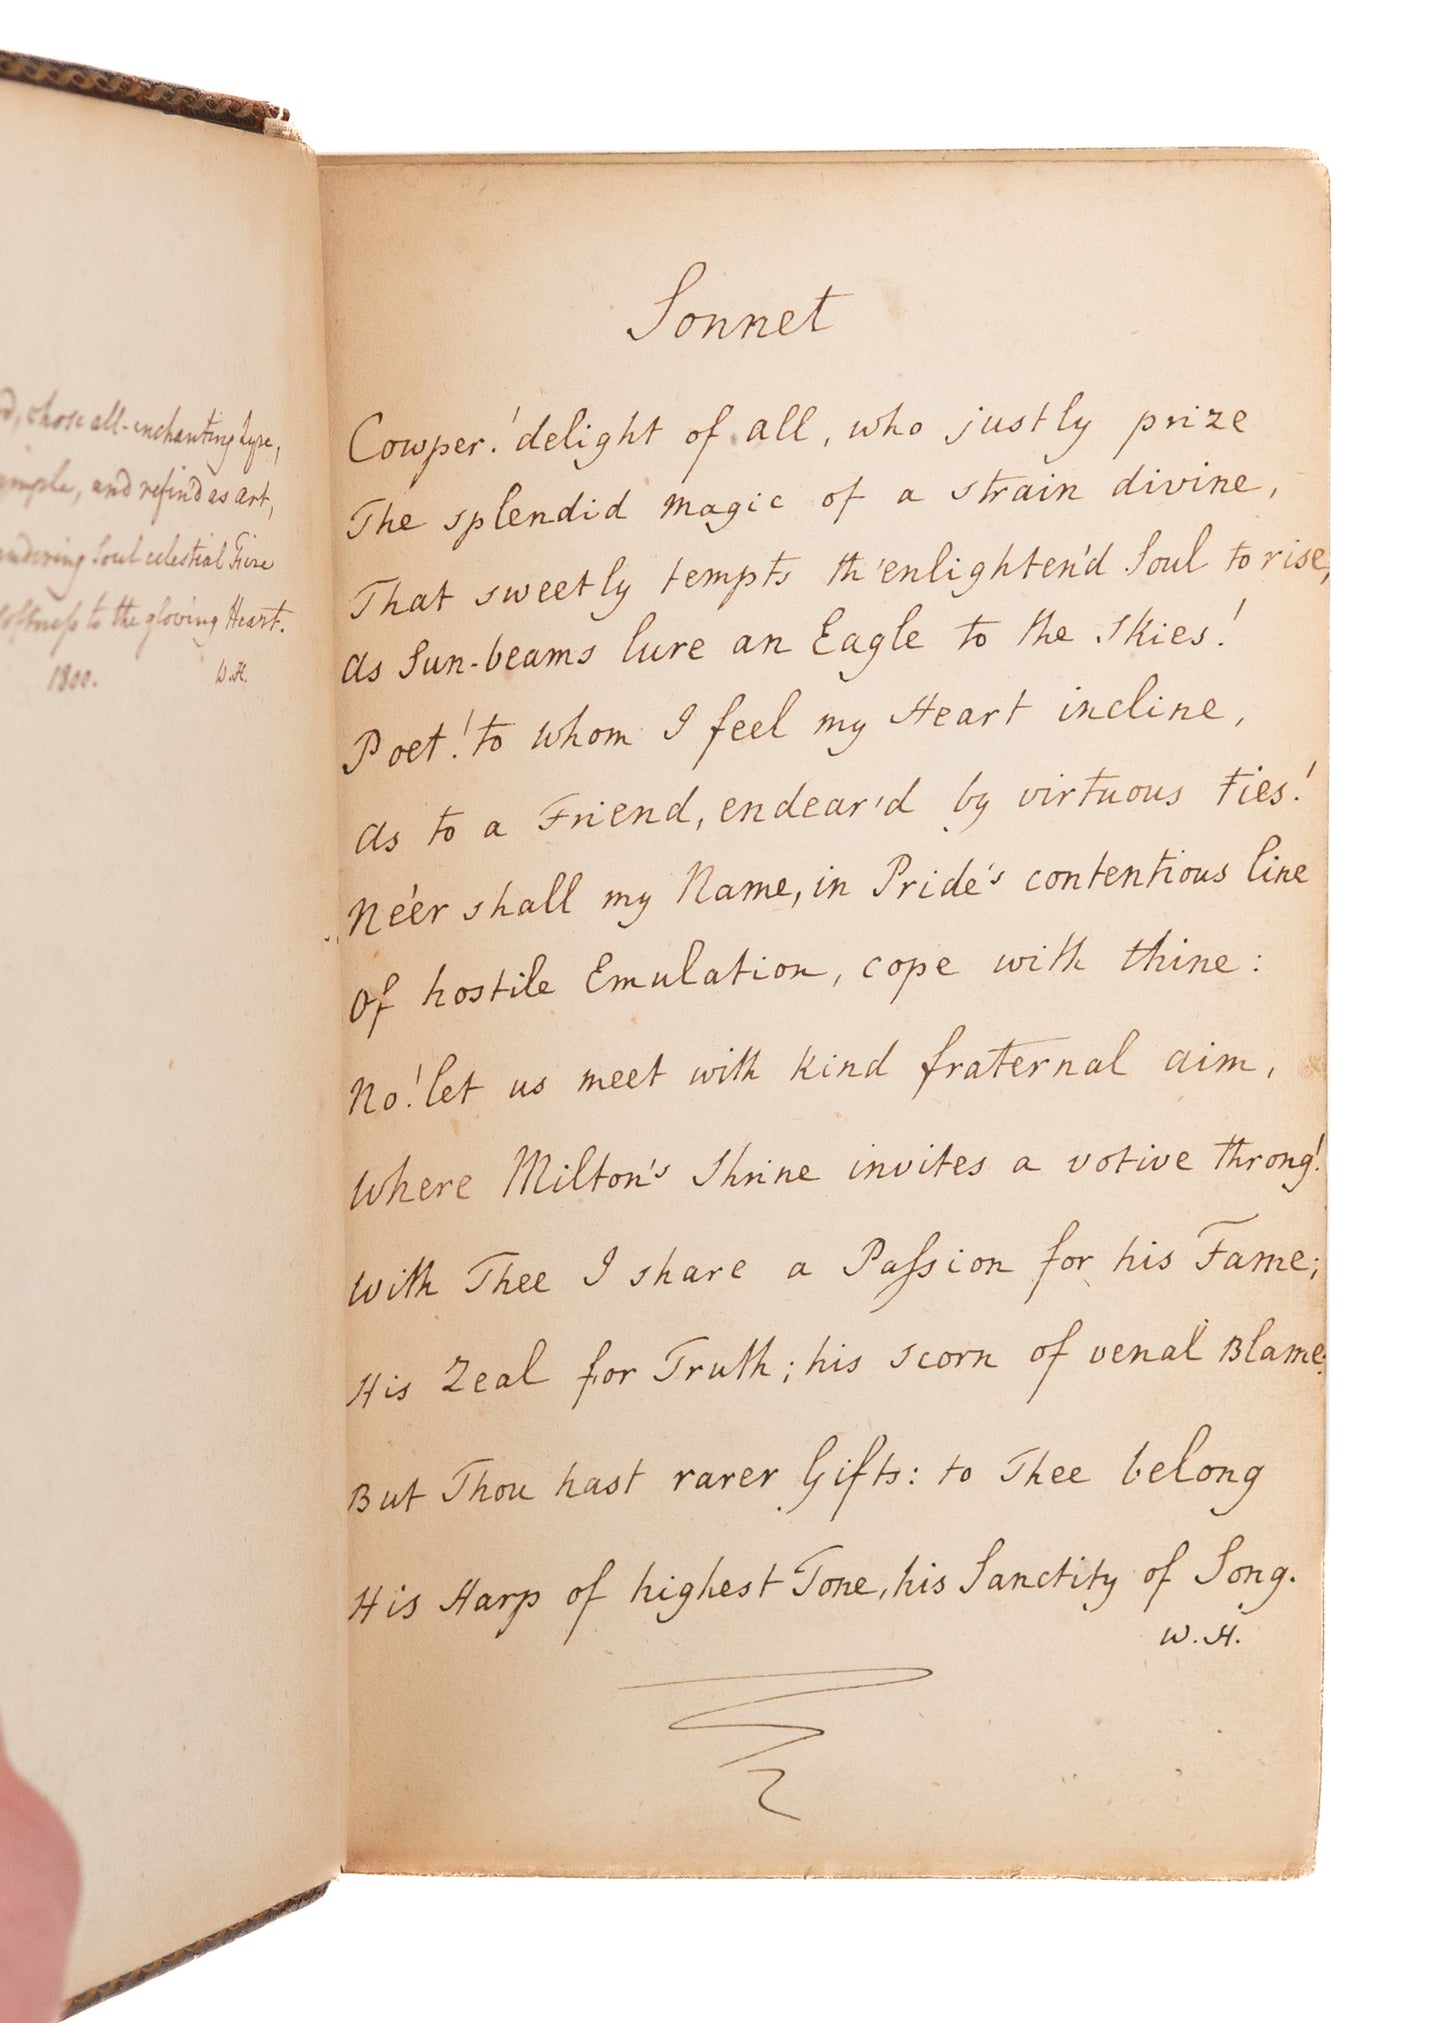 whose all-enchanting Lyre,
simple, and refin'd as art,
Soul celestial Fire
softneſs to the glowing Heart.
1800. W.H.
Sonnet
Cowper! delight of all, who justly prize
The splendid magic of a strain divine,
That sweetly tempts th'enlighten'd Soul to rise,
as Sun-beams lure an Eagle to the Skies!
Poet! to whom I feel my Heart incline,
as to a Friend, endear'd by virtuous ties!
Ne'er shall my Name, in Pride's contentious line
Of hostile Emulation, cope with thine:
No! let us meet with kind fraternal aim,
Where Milton's Shrine invites a votive throng!
With Thee I share a Paſsion for his Fame;
His Zeal for Truth; his scorn of venal Blame:
But Thou hast rarer Gifts: to Thee belong
His Harp of highest Tone, his Sanctity of Song.
W.H.